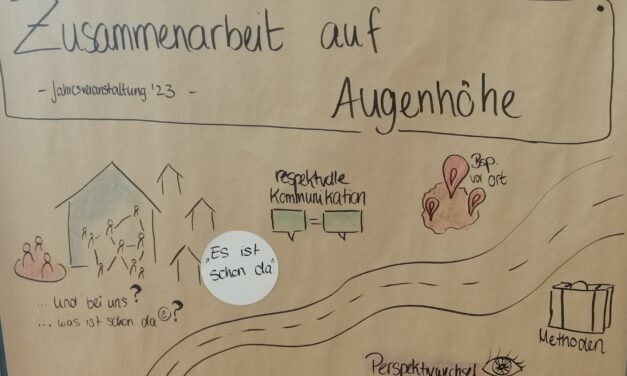 Zusammenarbeit auf
Augenhöhe
- Jahresveranstaltung '23 -
respektvolle
Kommunikation
=
Bsp.
vor Ort
"Es ist
schon da"
... und bei uns?
... was ist schon da?
Methoden
Perspektivwechsel